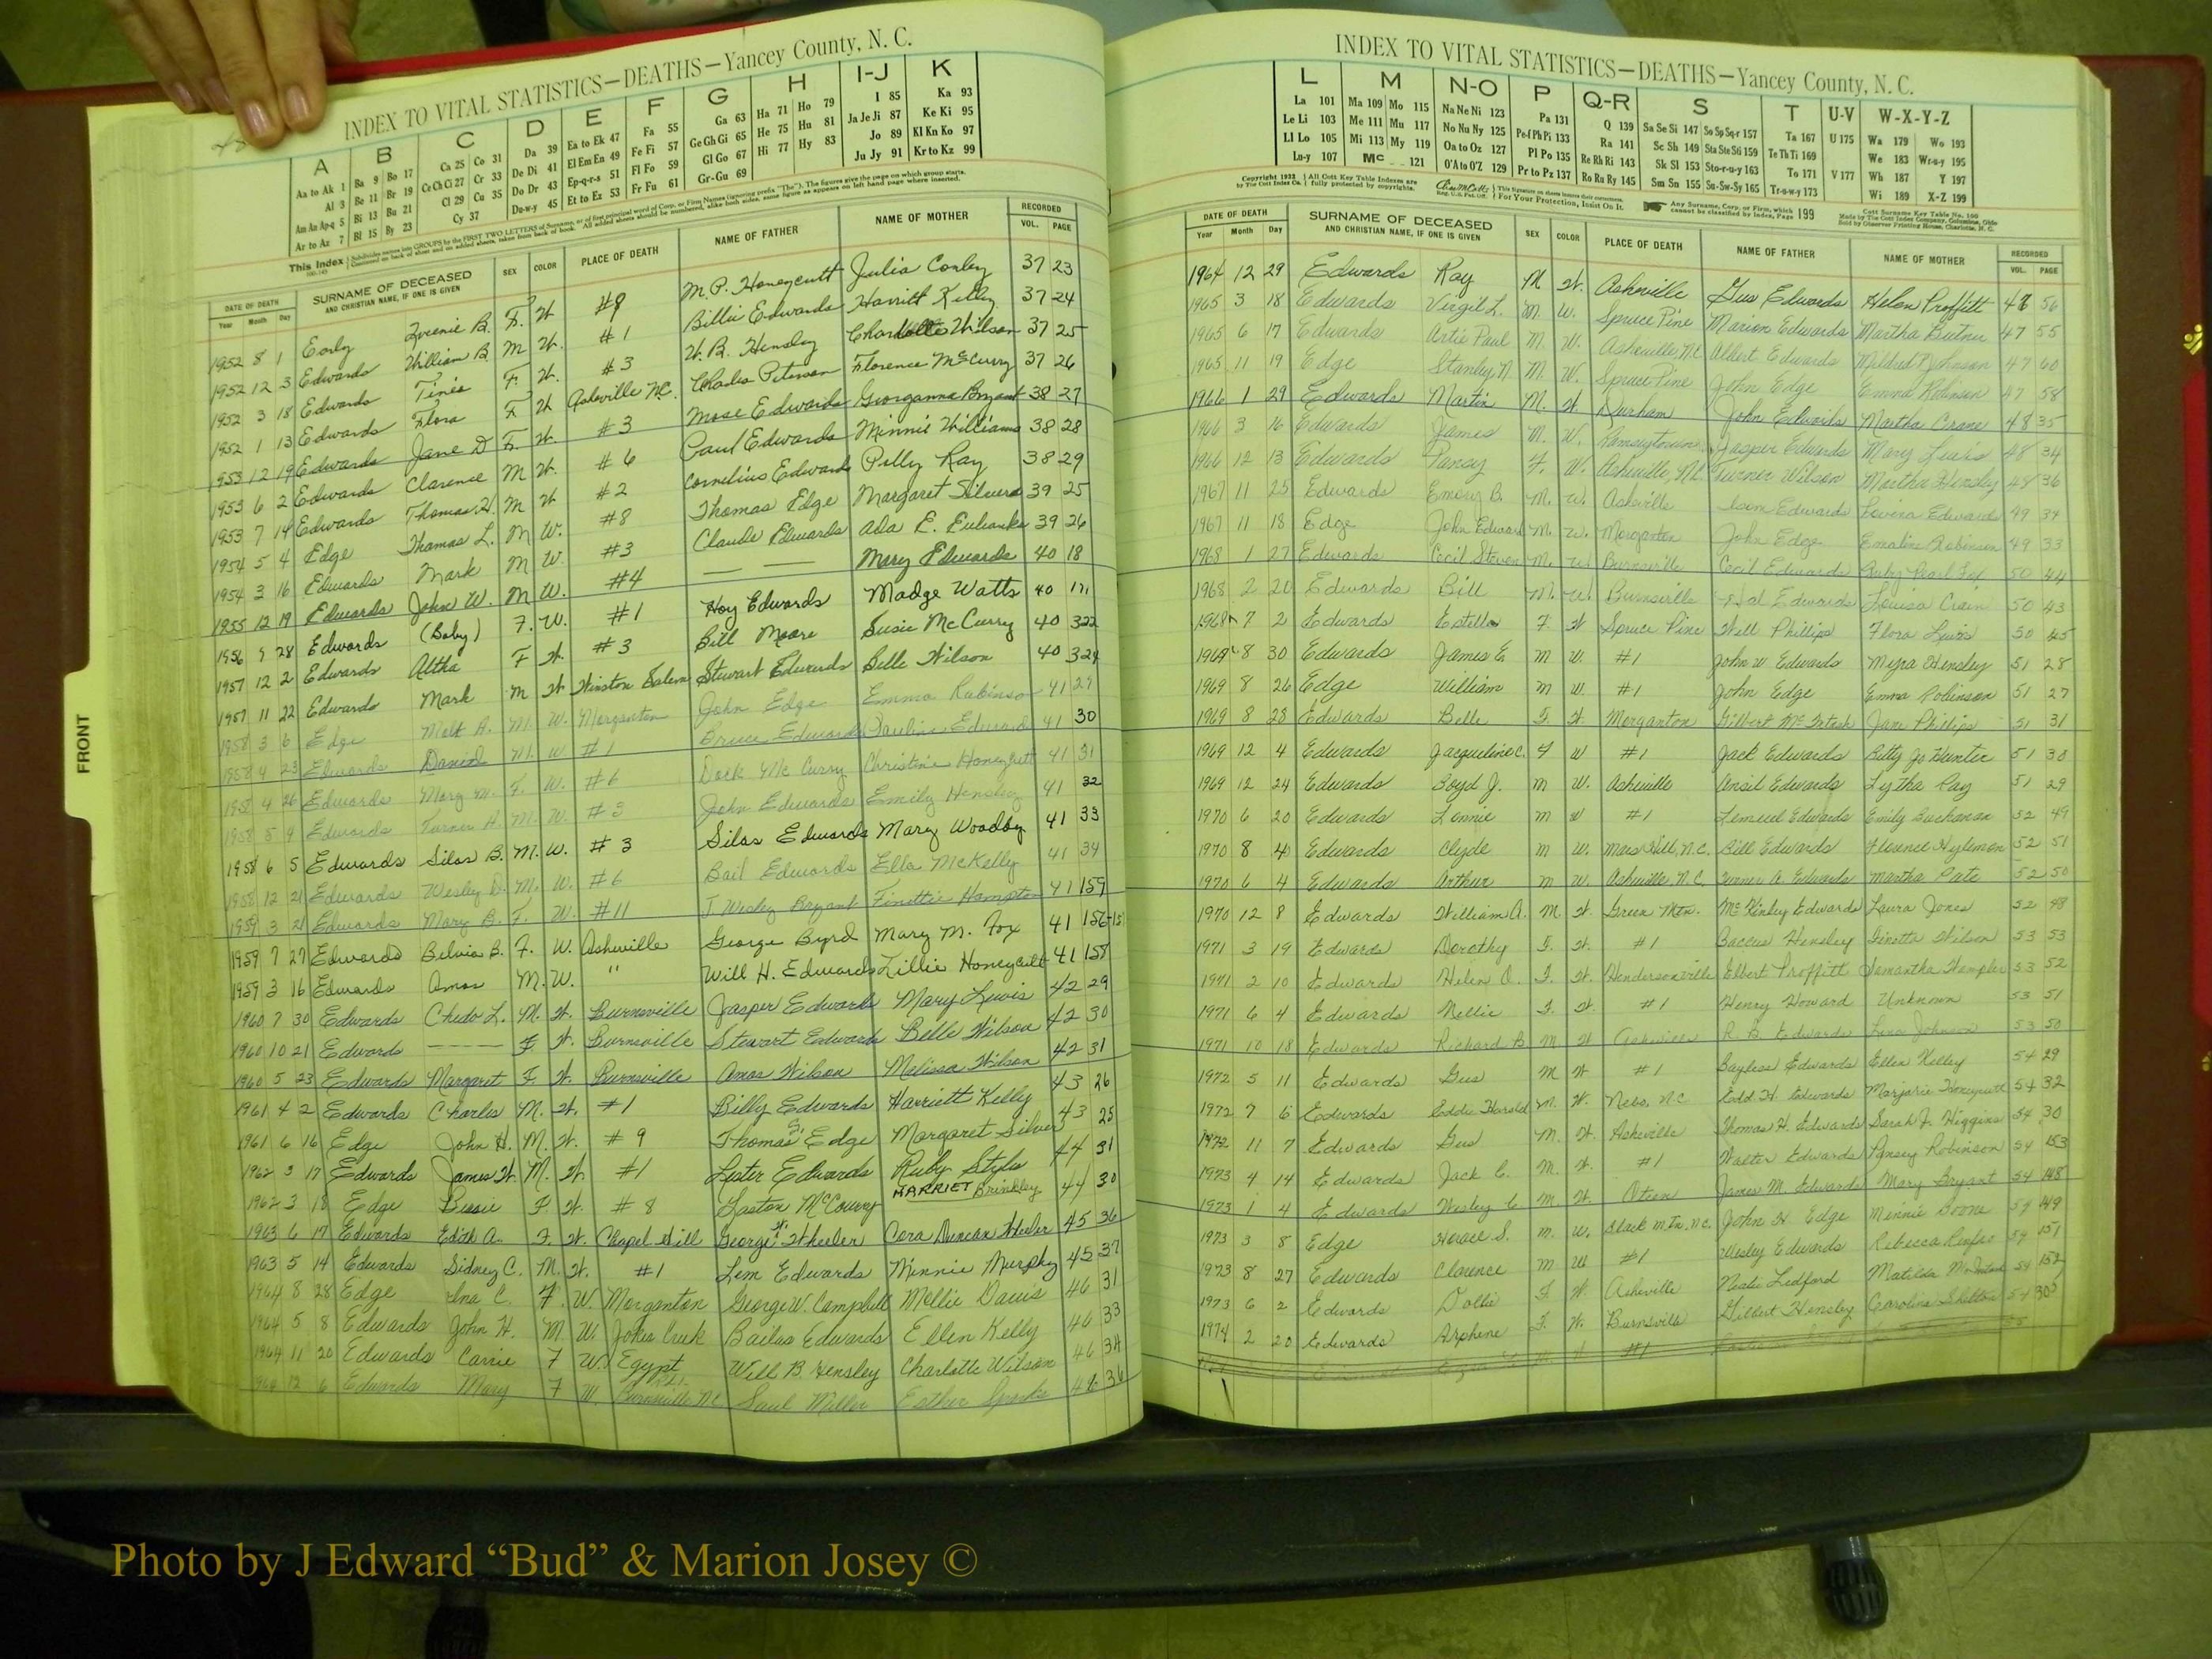 FRONT
INDEX TO VITAL STATISTICS—DEATHS—Yancey County, N. C.
A B C D E F G H I-J K
Aa to Ak 1 Ba 9 Bo 17 Ca 25 Co 31 Da 39 Ea to Ek 47 Fa 55 Ga 63 Ha 71 Ho 79 I 85 Ka 93
Al 3 Be 11 Br 19 Ce Ch Ci 27 Cr 33 De Di 41 El Em En 49 Fe Fi 57 Ge Gh Gi 65 He 75 Hu 81 Ja Je Ji 87 Ke Ki 95
Am An Ap-q 5 Bi 13 Bu 21 Cl 29 Cu 35 Do Dr 43 Ep-q-r-s 51 Fl Fo 59 Gl Go 67 Hi 77 Hy 83 Jo 89 Kl Kn Ko 97
Ar to Az 7 Bl 15 By 23 Cy 37 Du-w-y 45 Et to Ez 53 Fr Fu 61 Gr-Gu 69 Ju Jy 91 Kr to Kz 99
This Index
DATE OF DEATH Year Month Day SURNAME OF DECEASED AND CHRISTIAN NAME, IF ONE IS GIVEN SEX COLOR PLACE OF DEATH NAME OF FATHER NAME OF MOTHER RECORDED VOL. PAGE
1952 8 1 Early B. F. W #8 M. P. Honeycutt Julia Conley 37 23
1952 12 3 Edwards William B M W. #1 Billie Edwards Harritt Kelly 37 24
1952 3 18 Edwards F. W. #3 W. B. Hensley Charlotte Wilson 37 25
1952 1 13 Edwards Flora F W Asheville NC. Charles Peterson Florence McCurry 37 26
1953 12 19 Edwards Jane D F. W. #3 Mose Edwards Georganna Bryant 38 27
1953 6 2 Edwards Clarence M W. #6 Paul Edwards Minnie Williams 38 28
1953 7 14 Edwards Thomas H. M W #2 Cornelius Edwards Polly Ray 38 29
1954 5 4 Edge Thomas L. M W. #8 Thomas Edge Margaret Silvers 39 25
1954 3 16 Edwards Mark M W. #3 Claude Edwards Ada E. Eubanks 39 26
1955 12 19 Edwards John W. M W. #4 — — Mary Edwards 40 18
1956 9 28 Edwards (Baby) F. W. #1 Hoy Edwards Madge Watts 40
1957 12 2 Edwards Altha F W. #3 Bill Moore Susie McCurry 40 322
1957 11 22 Edwards Mark M W Winston Salem Stewart Edwards Belle Wilson 40 324
1958 3 6 Edge Melt A. M. W. Morganton John Edge Emma Robinson 41 29
1958 4 23 Edwards Daniel M. W #1 Bruce Edwards Pauline Edwards 41 30
1958 4 26 Edwards Mary M. F. W. #6 Dock McCurry Christine Honeycutt 41 31
1958 5 9 Edwards Turner H. M. W. #3 John Edwards Emily Hensley 41 32
1958 6 5 Edwards Silas B. M. W. #3 Silas Edwards Mary Woodby 41 33
1958 12 21 Edwards Wesley D. M. W. #6 Bail Edwards Ella McKelly 41 34
1959 3 21 Edwards Mary B. F. W. #11 J Wesley Bryant Finettie Hampton 41 159
1959 7 27 Edwards Belvia B. F. W. Asheville George Byrd Mary M. Fox 41
1959 3 16 Edwards Amos M. W. " Will H. Edwards Lillie Honeycutt 41 158
1960 7 30 Edwards Chedo L. M. W. Burnsville Jasper Edwards Mary Lewis 42 29
1960 10 21 Edwards — F. W. Burnsville Stewart Edwards Belle Wilson 42 30
1960 5 23 Edwards Margaret F. W. Burnsville Amos Wilson Melissa Wilson 42 31
1961 4 2 Edwards Charles M. W. #1 Billy Edwards Harriett Kelly 43 26
1961 6 16 Edge John H. M. W. #9 Thomas S. Edge Margaret Silver 43 25
1962 3 17 Edwards James W. M. W. #1 Lester Edwards Ruby Styles 44 31
1962 3 18 Edge Bessie F. W. #8 Laston McCourry HARRIET Brinkley 44 30
1963 6 17 Edwards Edith A. F. W. Chapel Hill George W. Wheeler Cora Duncan Wheeler 45 36
1963 5 14 Edwards Sidney C. M. W. #1 Lem Edwards Minnie Murphy 45 37
1964 8 28 Edge Ina C. F. W. Morganton George W. Campbell Mollie Davis 46 31
1964 5 8 Edwards John H. M. W. Jokes Creek Bailus Edwards Ellen Kelly 46 33
1964 11 20 Edwards Carrie F W. Egypt Will B. Hensley Charlotte Wilson 46 34
1964 12 6 Edwards Mary F W Burnsville NC Saul Miller Esther Sparks 46 36
INDEX TO VITAL STATISTICS—DEATHS—Yancey County, N. C.
L M N-O P Q-R S T U-V W-X-Y-Z
La 101 Ma 109 Mo 115 Na Ne Ni 123 Pa 131 Q 139 Sa Se Si 147 So Sp Sq-r 157 Ta 167 U 175 Wa 179 Wo 193
Le Li 103 Me 111 Mu 117 No Nu Ny 125 Pe-f Ph Pi 133 Ra 141 Sc Sh 149 Sta Ste Sti 159 Te Th Ti 169 We 183 Wr-u-y 195
Ll Lo 105 Mi 113 My 119 Oa to Oz 127 Pl Po 135 Re Rh Ri 143 Sk Sl 153 Sto-r-u-y 163 To 171 V 177 Wh 187 Y 197
Lu-y 107 Mc 121 O'A to O'Z 129 Pr to Pz 137 Ro Ru Ry 145 Sm Sn 155 Su-Sw-Sy 165 Tr-u-w-y 173 Wi 189 X-Z 199
Copyright 1932 by The Cott Index Co. All Cott Key Table Indexes are fully protected by copyrights. For Your Protection, Insist On It. Any Surname, Corp. or Firm, which cannot be classified by Index, Page 199
DATE OF DEATH Year Month Day SURNAME OF DECEASED AND CHRISTIAN NAME, IF ONE IS GIVEN SEX COLOR PLACE OF DEATH NAME OF FATHER NAME OF MOTHER RECORDED VOL. PAGE
1964 12 29 Edwards Ray M W. Asheville Gus Edwards Helen Proffitt 56
1965 3 18 Edwards Virgil L. M. W. Spruce Pine Marion Edwards Martha Butner 47 55
1965 6 17 Edwards Artie Paul M. W. Asheville, NC Albert Edwards Mildred Johnson 47 60
1965 11 19 Edge Stanley N. M. W. Spruce Pine John Edge Emma Robinson 47 58
1966 1 29 Edwards Martin M. W Durham John Edwards Martha Crane 48 35
1966 3 16 Edwards James M. W. Ramseytown Jasper Edwards Mary Lewis 48 34
1966 12 13 Edwards Pansy F. W. Asheville, NC Turner Wilson Martha Hensley 48 36
1967 11 25 Edwards Emory B. M. W. Asheville Isom Edwards Lovina Edwards 49 34
1967 11 18 Edge John Edward M. W. Morganton John Edge Emaline Robinson 49 33
1968 1 27 Edwards Cecil Steven M. W Burnsville Cecil Edwards Ruby Pearl Fox 50 44
1968 2 20 Edwards Bill M. W. Burnsville Edwards Louisa Crain 50 43
1968 7 2 Edwards Estella F. W Spruce Pine Will Phillips Flora Lewis 50 45
1969 8 30 Edwards James E. M W. #1 John W Edwards Myra Hensley 51 28
1969 8 26 Edge William M W. #1 John Edge Emma Robinson 51 27
1969 8 28 Edwards Belle F. W. Morganton Gilbert McIntosh Jane Phillips 51 31
1969 12 4 Edwards Jacqueline C. F W #1 Jack Edwards Betty Jo Hunter 51 30
1969 12 24 Edwards Boyd J. M W. Asheville Ansil Edwards Lytha Ray 51 29
1970 6 20 Edwards Lonnie M W #1 Lemuel Edwards Emily Buchanan 52 49
1970 8 4 Edwards Clyde M W. Mars Hill, N.C. Bill Edwards Florence Hylemon 52 51
1970 6 4 Edwards Arthur M W. Asheville, N.C. Turner A. Edwards Martha Pate 52 50
1970 12 8 Edwards William A. M. W. Green Mtn. McKinley Edwards Laura Jones 52 48
1971 3 19 Edwards Dorothy F. W. #1 Baccus Hensley Ginetta Wilson 53 53
1971 2 10 Edwards Helen O. F. W. Hendersonville Elbert Proffitt Samantha 53 52
1971 6 4 Edwards Nellie F. W. #1 Henry Howard Unknown 53 51
1971 10 18 Edwards Richard B M W Asheville R. B. Edwards Johnson 53 50
1972 5 11 Edwards Gus M W #1 Bayless Edwards Ellen Kelley 54 29
1972 7 6 Edwards Eddie Harold M. W. Nebo, N.C Edd H. Edwards Marjorie Honeycutt 54 32
1972 11 7 Edwards Gus M. W. Asheville Thomas H. Edwards Sarah J. Higgins 54 30
1973 4 14 Edwards Jack C. M. W. #1 Walter Edwards Pansey Robinson 54 153
1973 1 4 Edwards Wesley C M. W. Oteen James M. Edwards Mary Bryant 54 148
1973 3 8 Edge Horace S. M. W. Black Mtn. N.C. John H Edge Minnie Boone 54 149
1973 8 27 Edwards Clarence M W #1 Wesley Edwards Rebecca 54 151
1973 6 2 Edwards Dollie F W. Asheville Ledford Matilda 54 152
1974 2 20 Edwards Arphine F. W. Burnsville Gilbert Hensley Caroline Shelton
#1
Photo by J Edward “Bud” & Marion Josey ©